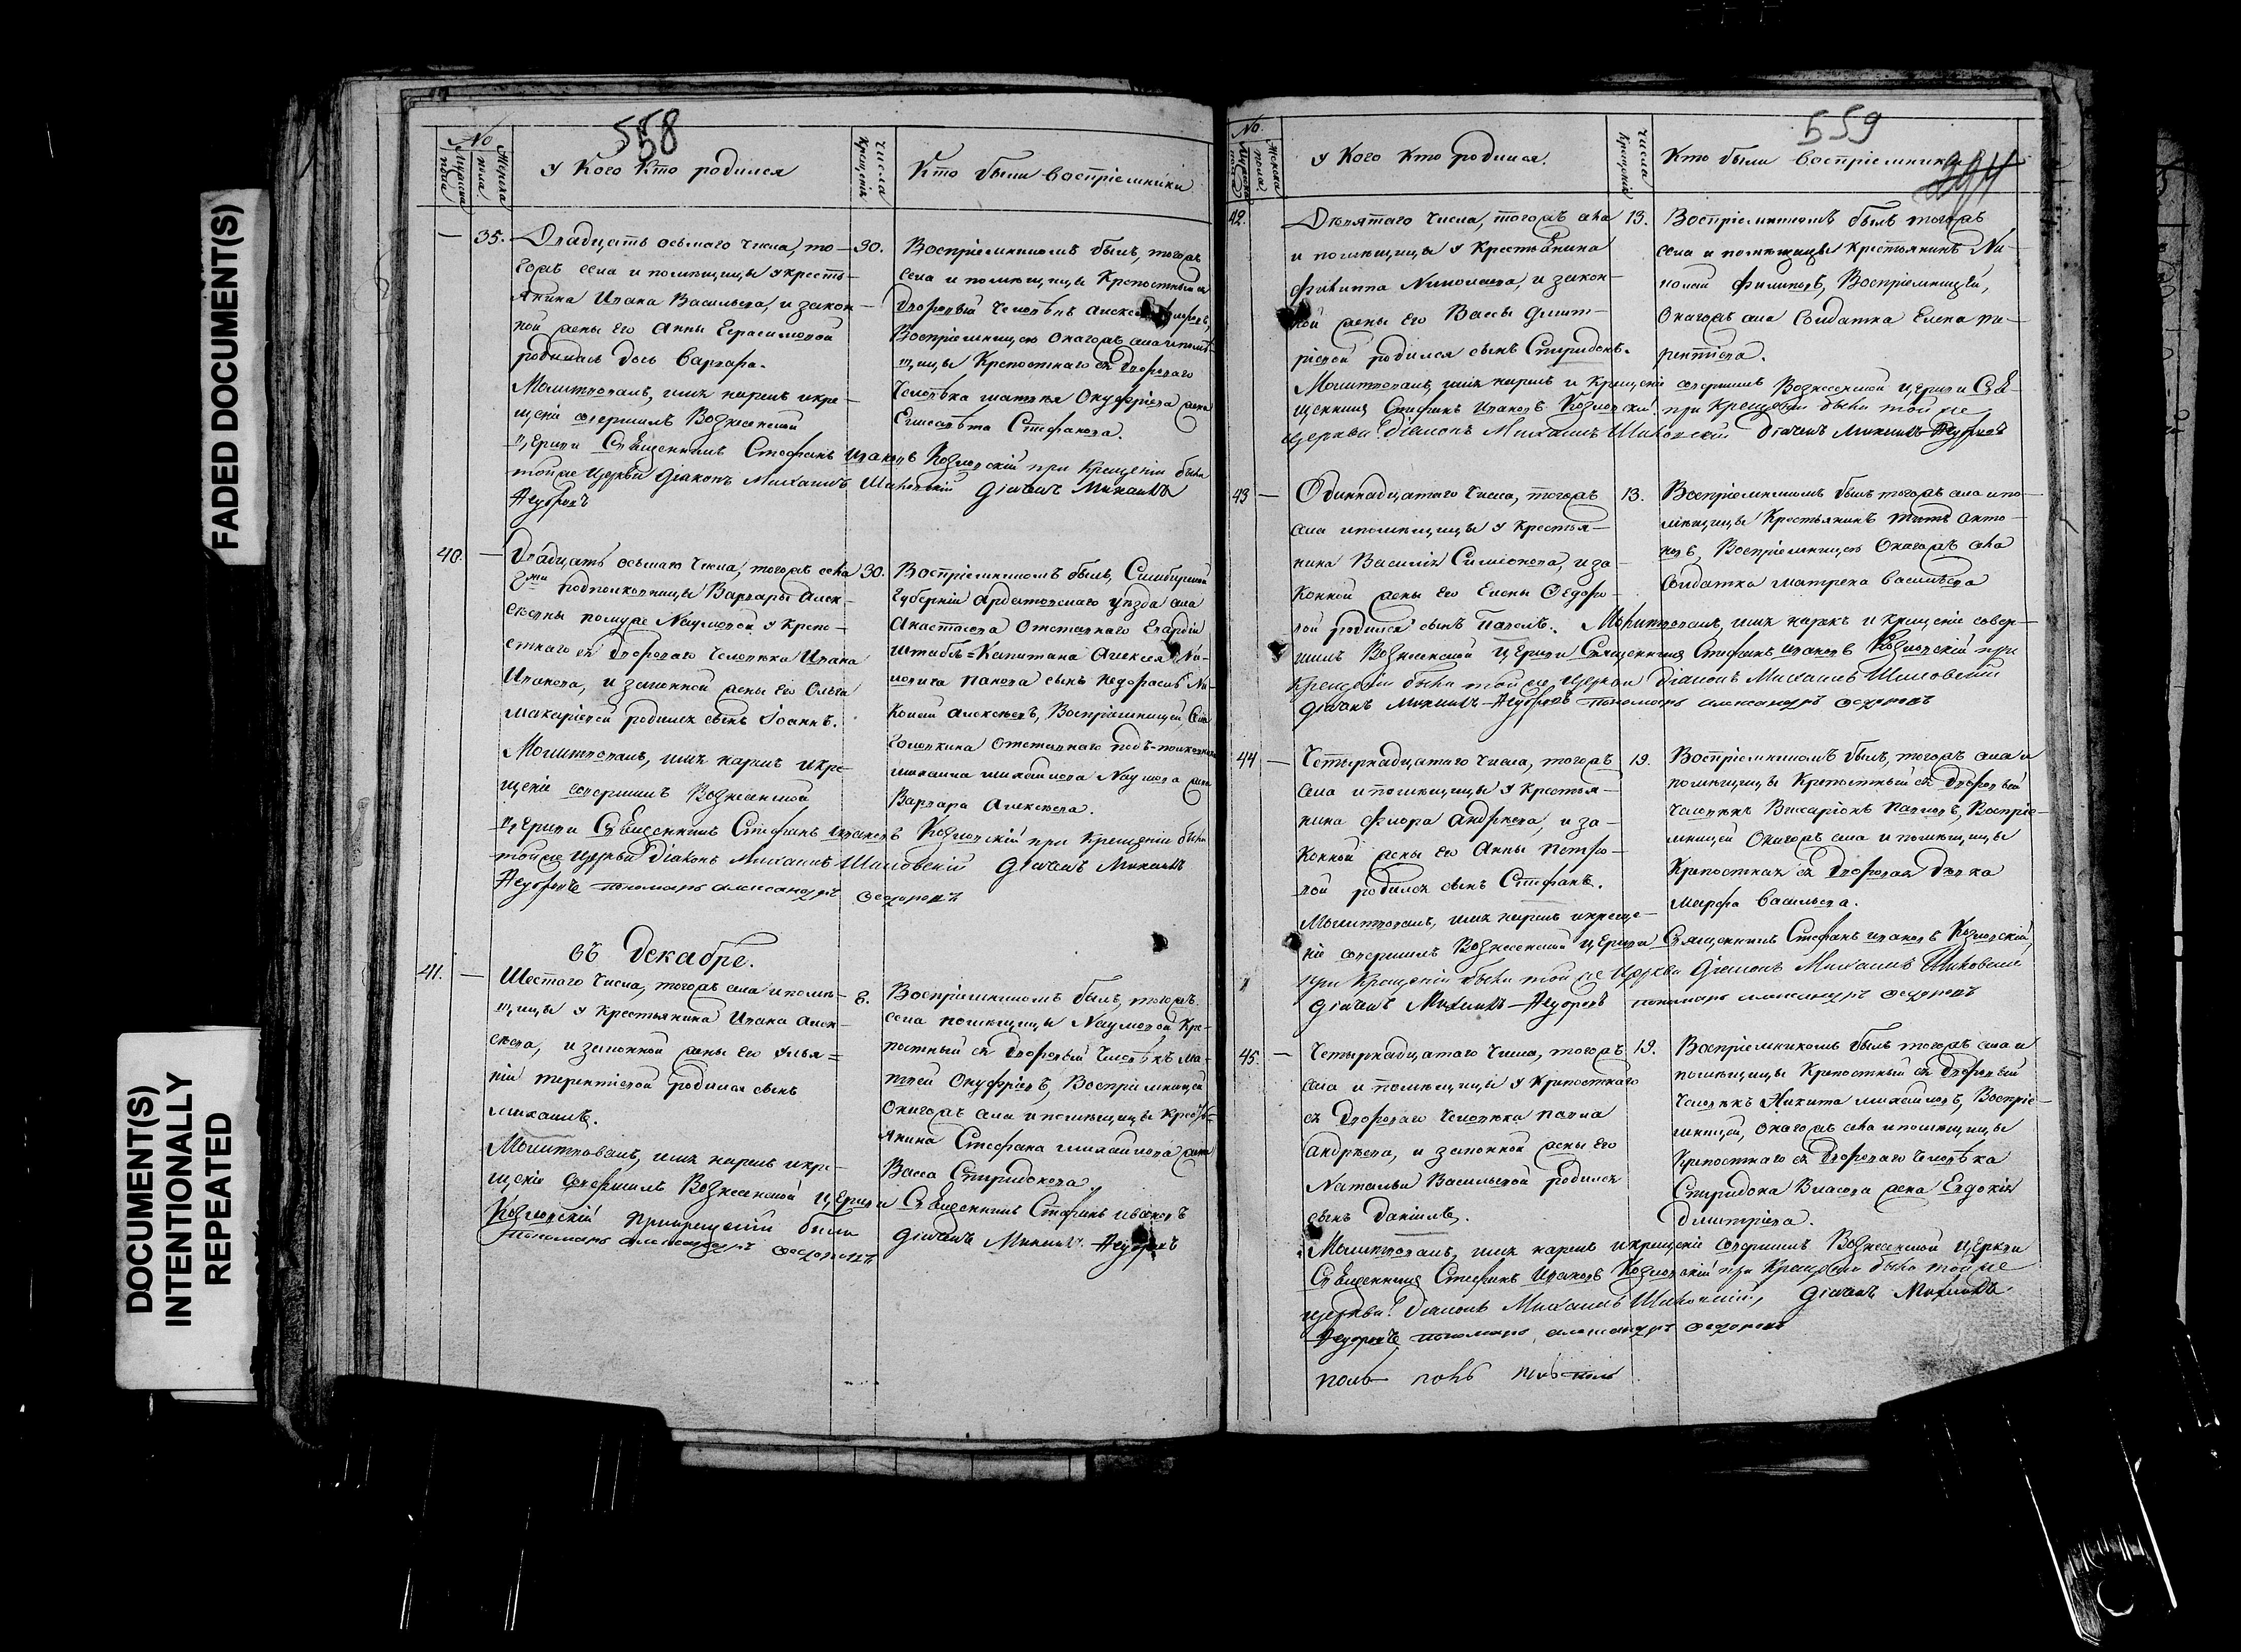 FADED DOCUMENT(S)
DOCUMENT(S)
INTENTIONALLY
REPEATED
558
No
Мужеска пола
Женска пола
У кого кто родился
Числа крещенiя
Кто были воспрiемники
35.
Двадцать осьмаго числа, то-
гожъ села и помѣщицы у кресть-
янина Ивана Васильева, и закон-
ной жены его Анны Герасимовой
родилась дочь Варвара.
Молитвовалъ, имя нарекъ и кре-
щенiе совершилъ Вознесенской
церкви Священникъ Стефанъ Ивановъ Козловскiй при крещенiи были
тойже церкви Дiаконъ Михаилъ Шиловскiй Дiачекъ Михаилъ
30.
Воспрiемникомъ былъ, тогожъ
села и помѣщицы крепостный
дворовый человѣкъ Алексей
Воспрiемницею онагожъ села и помѣ-
щицы крепостнаго дворового
человѣка Матвея Онуфрiева жена
Елисавета Стефанова.
40.
Двадцать осьмаго числа, тогожъ села
Гжи Подполковницы Варвары Алек-
сѣевны Наумовой у крепо-
стнаго дворового человѣка Ивана
Иванова, и законной жены его Ольги
Макарiевой родился сынъ Iоаннъ.
Молитвовалъ, имя нарекъ и кре-
щенiе совершилъ Вознесенской
церкви Священникъ Стефанъ Ивановъ Козловскiй при крещенiи были
тойже церкви Дiаконъ Михаилъ Шиловскiй Дiачекъ Михаилъ
пономарь Александръ Федоровъ
30.
Воспрiемникомъ былъ, Симбирской
Губернiи Ардатовскаго уѣзда села
Анастасова отставнаго Гвардiи
Штабсъ=Капитана Алексея Ни-
Панова сынъ
Алексѣевъ, Воспрiемницей, села
отставнаго подъ-полковника
Михаила Михайлова Наумова жена
Варвара Алексѣева.
въ Декабре.
41.
Шестаго числа, тогожъ села и помѣ-
щицы у крестьянина Ивана Алек-
сѣева, и законной жены его Улья=
нiи Терентiевой родился сынъ
Михаилъ.
Молитвовалъ, имя нарекъ и кре-
щенiе совершилъ Вознесенской церкви Священникъ Стефанъ Ивановъ
Козловскiй при крещенiи были Дiачекъ Михаилъ
пономарь Александръ Федоровъ
8.
Воспрiемникомъ былъ, тогожъ
села помѣщицы Наумовой кре-
постный дворовый человѣкъ Ма-
твей Онуфрiевъ, Воспрiемницей
онагожъ села и помѣщицы кресть-
янина Стефана Михайлова жена
Васса Спиридонова.
559
294
No.
Мужеска пола
Женска пола
У кого кто родился.
Числа крещенiя
Кто были воспрiемники
42.
Девятаго числа, тогожъ села
и помѣщицы у крестьянина
Филиппа Николаева, и закон-
ной жены его Вассы Дмит-
рiевой родился сынъ Спиридонъ.
Молитвовалъ, имя нарекъ и крещенiе совершилъ Вознесенской церкви Свя-
щенникъ Стефанъ Ивановъ Козловскiй при крещенiи были тойже
церкви Дiаконъ Михаилъ Шиловскiй Дiачекъ Михаилъ
13.
Воспрiемникомъ былъ тогожъ
села и помѣщицы крестьянинъ Ни-
колай Филиповъ, Воспрiемницей,
онагожъ села солдатка Елена
43
Одиннадцатаго числа, тогожъ
села и помѣщицы у крестья-
нина Василiя Симионова, и за-
конной жены его Елены Федоро-
вой родился сынъ Павелъ. Молитвовалъ, имя нарекъ и крещенiе совер-
шилъ Вознесенской церкви Священникъ Стефанъ Ивановъ Козловскiй при
крещенiи были тойже церкви Дiаконъ Михаилъ Шиловскiй
Дiачекъ Михаилъ пономарь Александръ Федоровъ
13.
Воспрiемникомъ былъ тогожъ села и по-
мѣщицы крестьянинъ Титъ Анто-
новъ, Воспрiемницею онагожъ села
солдатка Матрена Васильева
44
Четырнадцатаго числа, тогожъ
села и помѣщицы у крестья-
нина Флора Андрѣева, и за-
конной жены его Анны Петро-
вой родился сынъ Стефанъ.
Молитвовалъ, имя нарекъ и креще-
нiе совершилъ Вознесенской церкви Священникъ Стефанъ Ивановъ Козловскiй,
при крещенiи были тойже церкви Дiаконъ Михаилъ Шиловскiй
Дiачекъ Михаилъ пономарь Александръ Федоровъ
19.
Воспрiемникомъ былъ, тогожъ села и
помѣщицы крепостный дворовый
человѣкъ Виссарiонъ Павловъ, Воспрiе-
мницей онагожъ села и помѣщицы
крепостная дворовая девка
Марфа Васильева.
45.
Четырнадцатаго числа, тогожъ
села и помѣщицы у крепостнаго
дворового человѣка Павла
Андрѣева, и законной жены его
Натальи Васильевой родился
сынъ Данiилъ.
Молитвовалъ, имя нарекъ и крещенiе совершилъ Вознесенской церкви
Священникъ Стефанъ Ивановъ Козловскiй при крещенiи были тойже
церкви Дiаконъ Михаилъ Шиловскiй, Дiачекъ Михаилъ
пономарь Александръ Федоровъ
19.
Воспрiемникомъ былъ тогожъ села и
помѣщицы крепостный дворовый
человѣкъ Никита Михайловъ, Воспрiе-
мницей, онагожъ села и помѣщицы
крепостнаго дворового человѣка
Спиридона Власова жена Евдокiя
Дмитрiева.